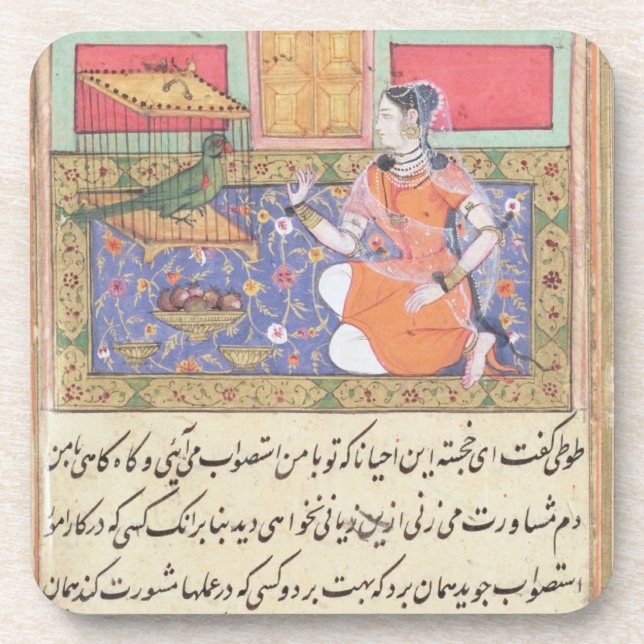 طوطی گفت ای خجسته این احیانا که تو با من استصواب می آیٔی و گاه گاهی با من
دم مشاورت می زنی ازین زیانی نخواهی دید بنا بر انک کسی که در کارامو
استصواب جوید همان برد که بهت برد و کسی که در عملها مشورت کند همان